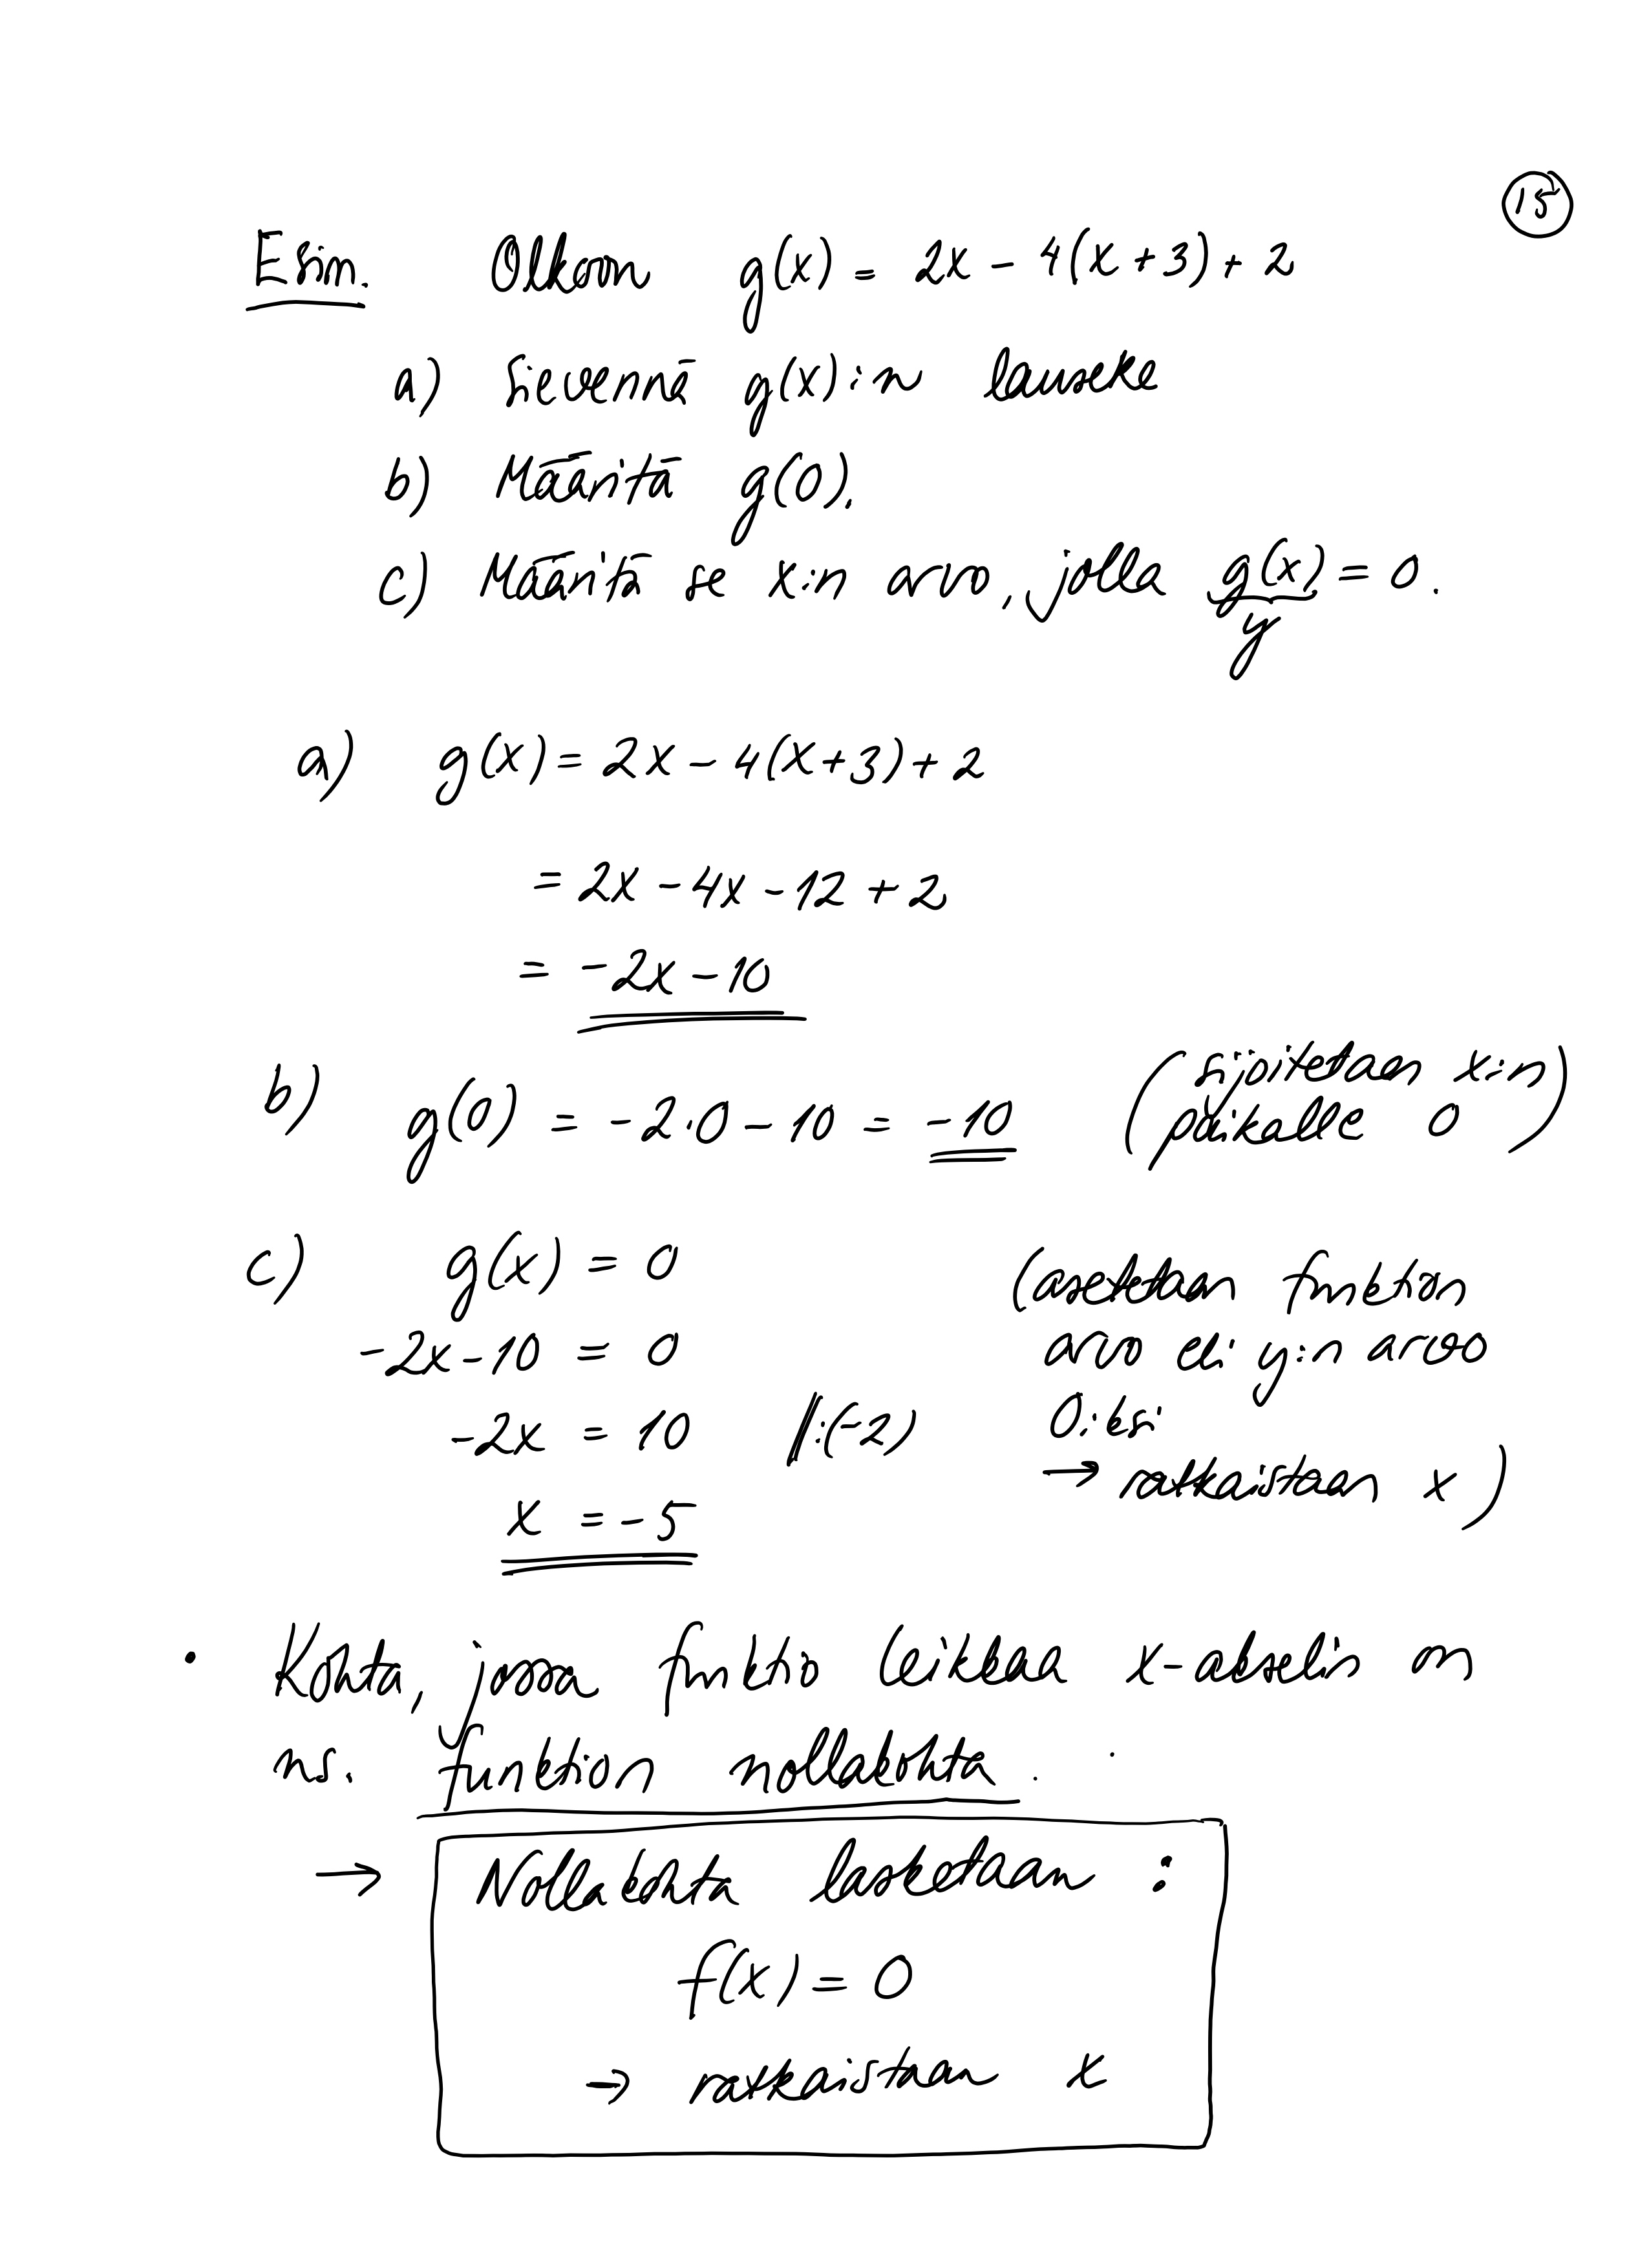 15
Esim. Olkoon g(x) = 2x - 4(x + 3) + 2
a) Sievennä g(x):n lauseke
b) Määritä g(0).
c) Määritä se x:n arvo, jolla g(x) = 0.
y
a) g(x) = 2x - 4(x+3) + 2
= 2x - 4x - 12 + 2
= -2x - 10
b) g(0) = -2·0 - 10 = -10 (sijoitetaan x:n
paikalle 0)
c) g(x) = 0 (asetetaan funktion
-2x - 10 = 0 arvo eli y:n arvo
-2x = 10 //:(-2) 0:ksi
x = -5 → ratkaistaan x)
• Kohta, jossa funktio leikkaa x-akselin on
ns. funktion nollakohta.
→ Nollakohta lasketaan:
f(x) = 0
→ ratkaistaan x